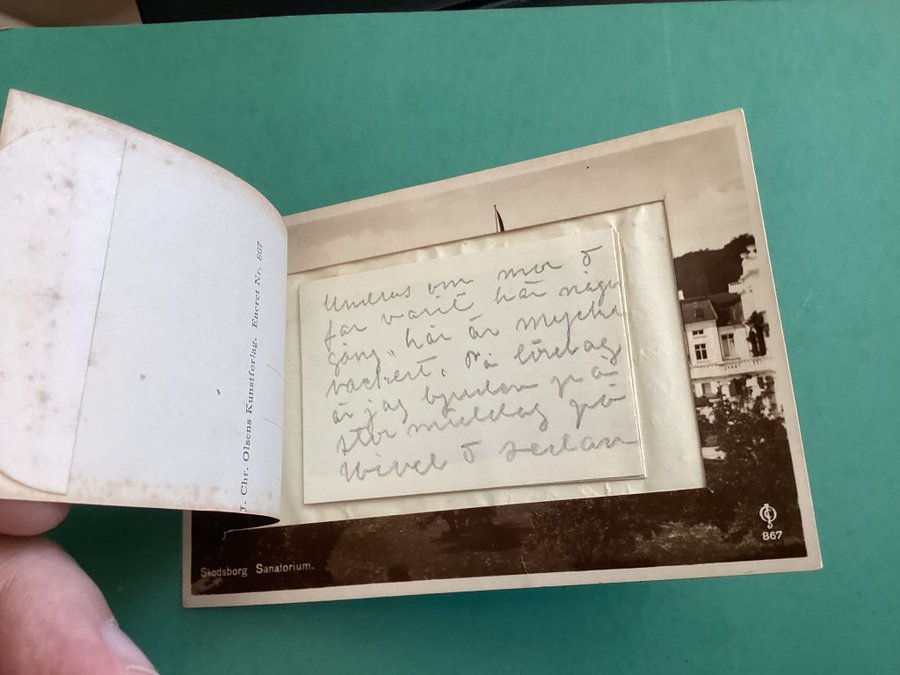 J. Chr. Olsens Kunstforlag. Eneret Nr. 867
Undras om mor o
far varit här någo
gång, här är mycket
vackert. På lördag
är jag bjuden på
stor middag på
Wivel o sedan
Skodsborg Sanatorium.
867